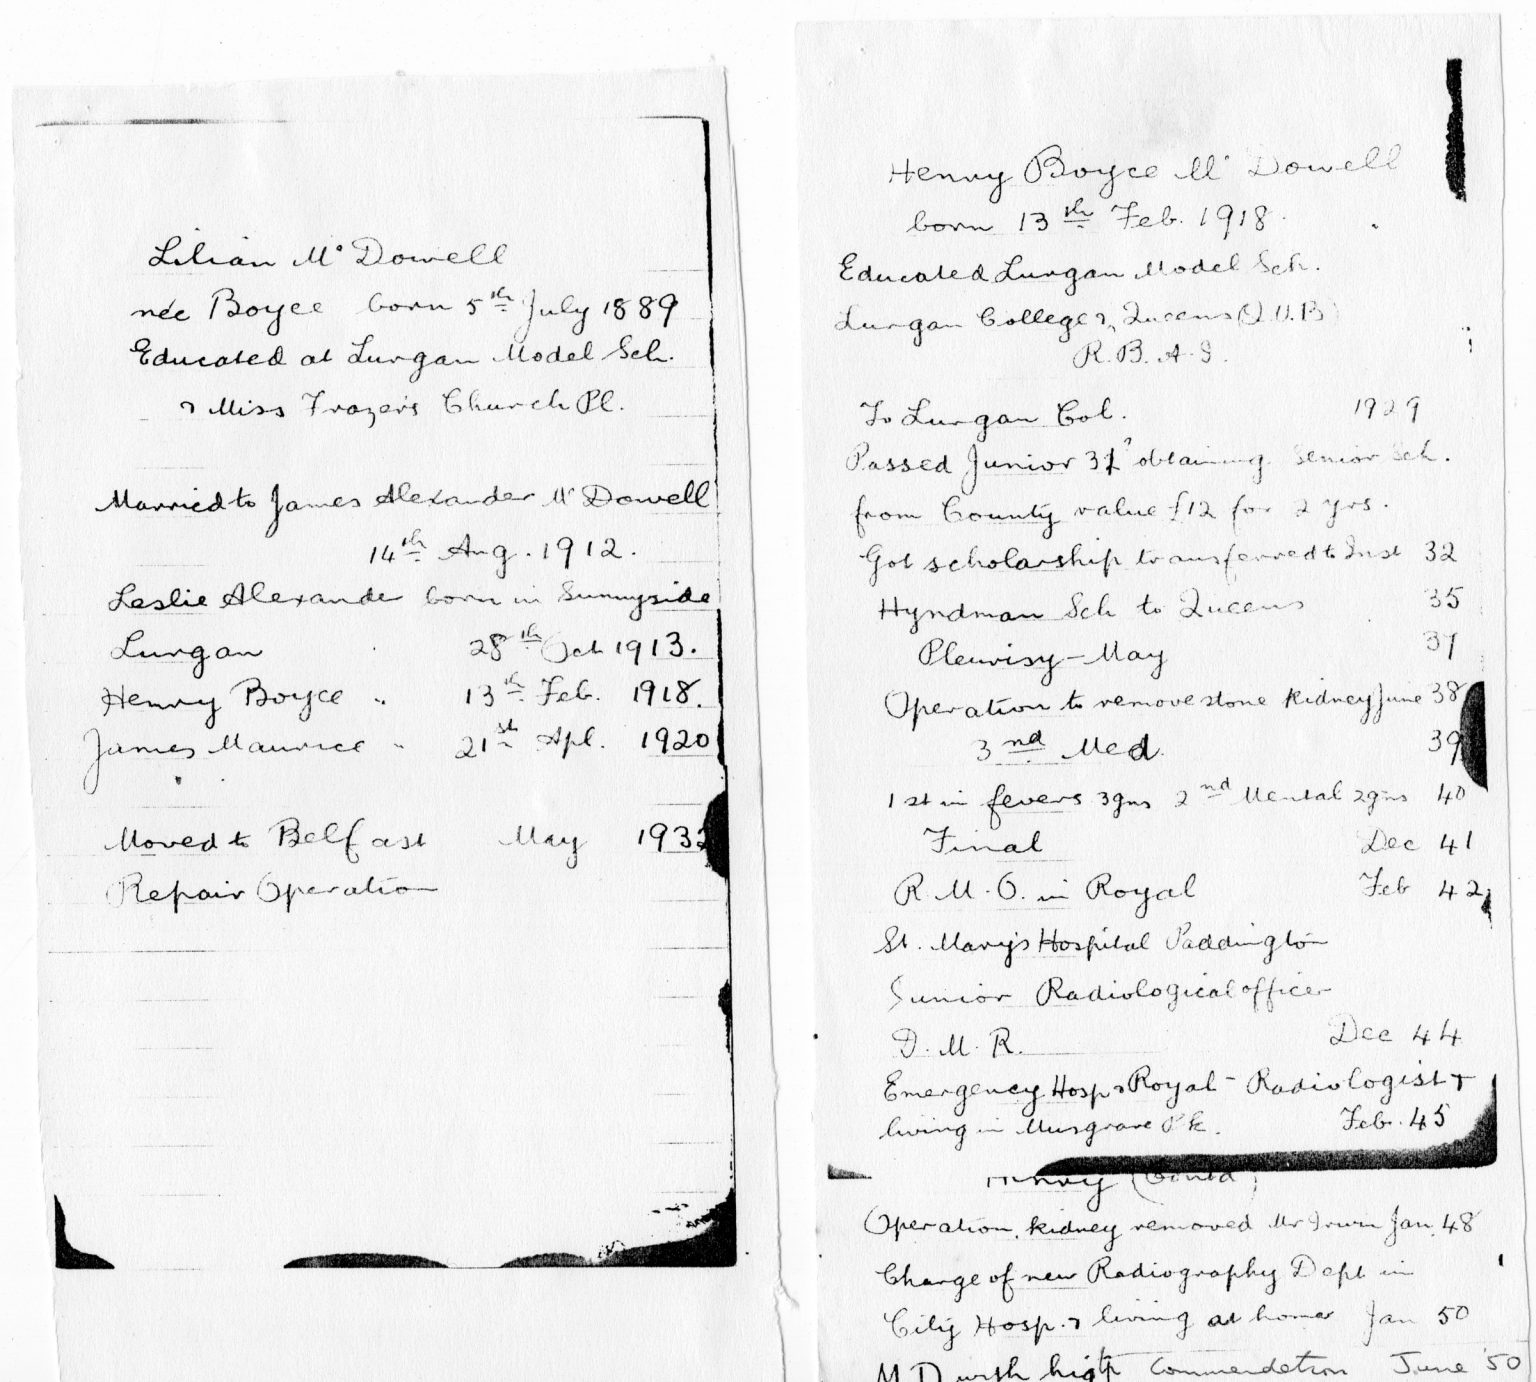 Lilian Mc Dowell
née Boyce born 5th July 1889
Educated at Lurgan Model Sch.
& Miss Frazer's Church Pl.
Married to James Alexander Mc Dowell
14th Aug. 1912.
Leslie Alexander born in Sunnyside
Lurgan 28th Oct 1913.
Henry Boyce " 13th Feb. 1918.
James Maurice " 21st Apl. 1920
Moved to Belfast May 1932
Repair Operation
Henry Boyce Mc Dowell
born 13th Feb. 1918.
Educated Lurgan Model Sch.
Lurgan College & Queens (Q.U.B)
R.B.A.I.
To Lurgan Col. 1929
Passed Junior 31 obtaining Senior Sch.
from County value £12 for 2 yrs.
Got scholarship transferred to Inst 32
Hyndman Sch to Queens 35
Pleurisy - May 37
Operation to remove stone kidney June 38
3nd Med. 39
1st in fevers 3gns 2nd Mental 2gns 40
Final Dec 41
R.M.O. in Royal Feb 42
St. Mary's Hospital Paddington
Junior Radiological officer
D.M.R. Dec 44
Emergency Hosp & Royal - Radiologist +
living in Musgrave Pk. Feb. 45
Henry (Contd)
Operation, kidney removed Mr Irwin Jan. 48
Charge of new Radiography Dept in
City Hosp. & living at home Jan 50
M D with high commendation June 50